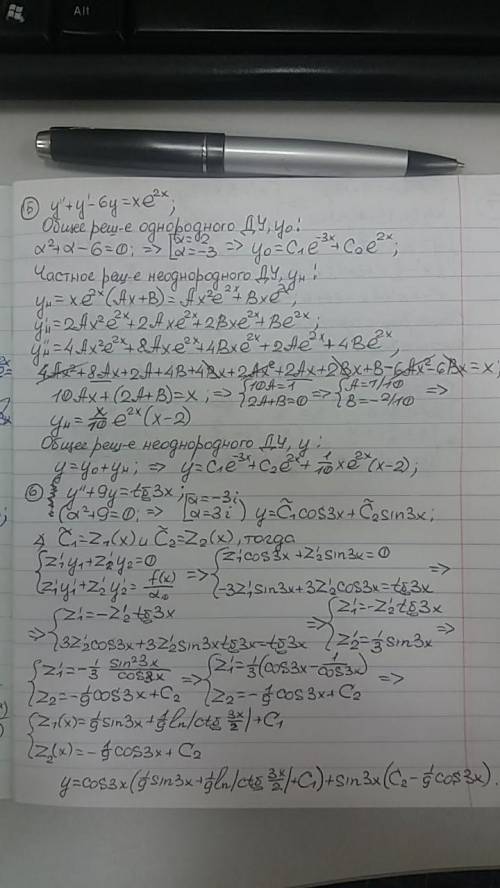 Alt
5) y''+y'-6y=xe^{2x};
Общее реш-е однородного ДУ, y₀:
α²+α-6=0; => [α=2 α=-3 => y₀=C₁e^{-3x}+C₂e^{2x};
Частное реш-е неоднородного ДУ, yн:
yн=xe^{2x}(Ax+B)=Ax²e^{2x}+Bxe^{2x};
y'н=2Ax²e^{2x}+2Axe^{2x}+2Bxe^{2x}+Be^{2x};
y''н=4Ax²e^{2x}+8Axe^{2x}+4Bxe^{2x}+2Ae^{2x}+4Be^{2x},
4Ax²+8Ax+2A+4B+4Bx+2Ax²+2Ax+2Bx+B-6Ax²-6Bx=x;
10Ax+(2A+B)=x; => {10A=1 2A+B=0 => {A=1/10 B=-2/10 =>
yн=x/10 e^{2x}(x-2)
Общее реш-е неоднородного ДУ, y:
y=y₀+yн; => y=C₁e^{-3x}+C₂e^{2x}+1/10 xe^{2x}(x-2);
6) y''+9y=tg3x;
(α²+9=0; => [α=-3i α=3i) y=C̃₁cos3x+C̃₂sin3x;
∢ C̃₁=Z₁(x) и C̃₂=Z₂(x), тогда
{Z'₁y₁+Z'₂y₂=0 Z'₁y'₁+Z'₂y'₂=f(x)/α₀ => {Z'₁cos3x+Z'₂sin3x=0 -3Z'₁sin3x+3Z'₂cos3x=tg3x =>
=> {Z'₁=-Z'₂tg3x 3Z'₂cos3x+3Z'₂sin3xtg3x=tg3x => {Z'₁=-Z'₂tg3x Z'₂=1/3 sin3x =>
{Z'₁=-1/3 sin²3x/cos3x Z₂=-1/9 cos3x+C₂ => {Z'₁=1/3(cos3x-1/cos3x) Z₂=-1/9 cos3x+C₂ =>
{Z₁(x)=1/9 sin3x+1/9 ln|ctg 3x/2|+C₁
Z₂(x)=-1/9 cos3x+C₂
y=cos3x(1/9 sin3x+1/9 ln|ctg 3x/2|+C₁)+sin3x(C₂-1/9 cos3x).